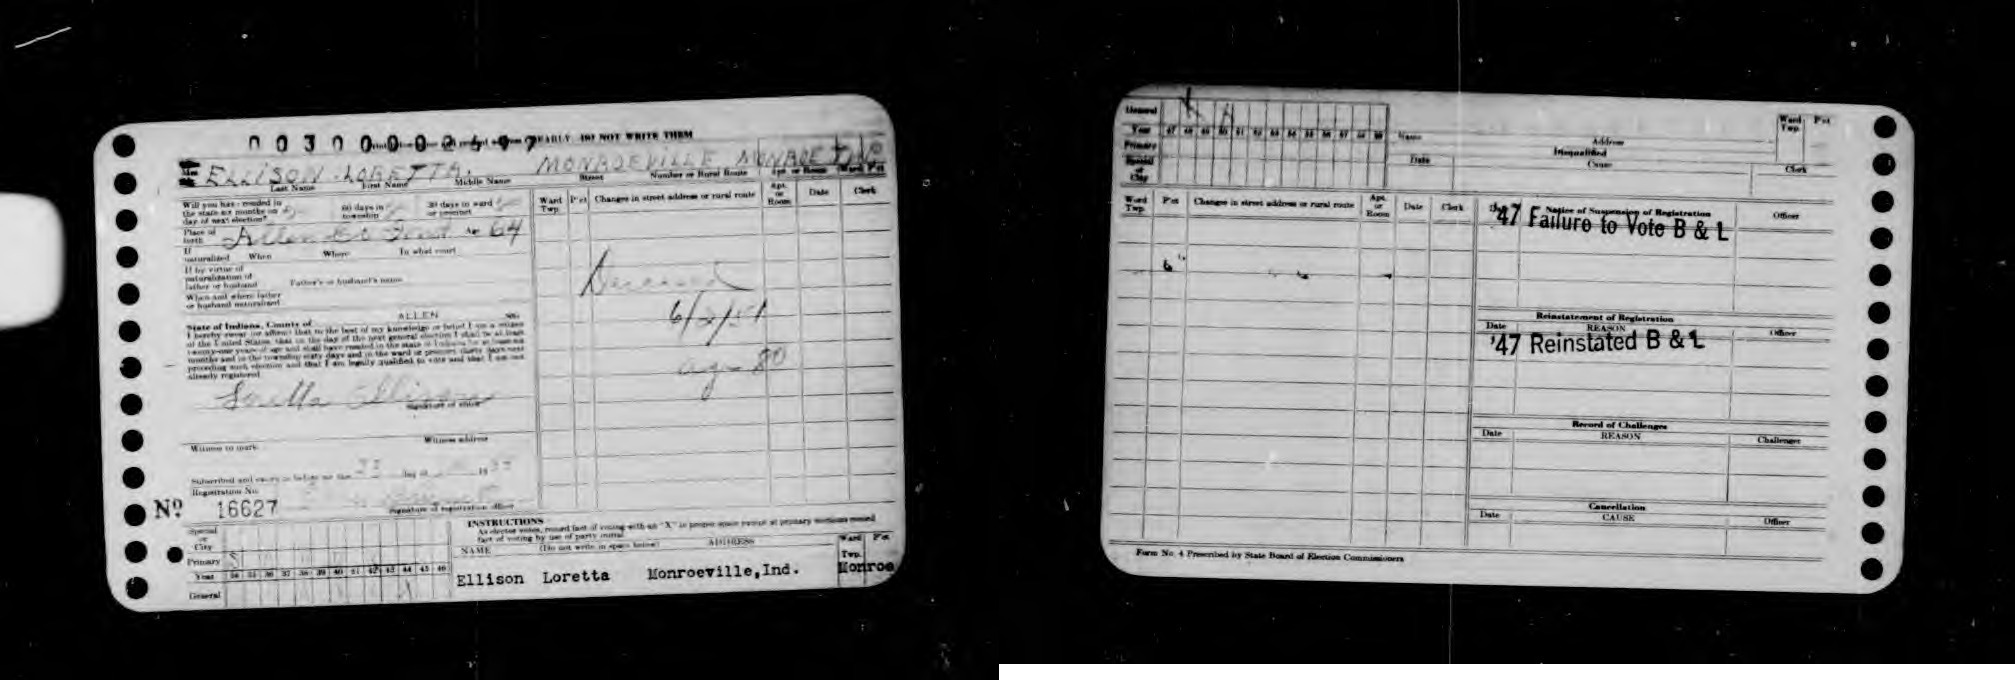 0 0 3 0 0 0 0 2 4 9 7 EARLY DO NOT WRITE THEM
ELLISON LORETTA. MONROEVILLE MONROE TWP
Last Name First Name Middle Name Street Number or Rural Route Apt. or Room Ward P'ct
Will you have resided in
the state six months on
day of next election?
60 days in
township
30 days in ward
or precinct
Place of
birth Allen Co Ind Age 64
If
naturalized When Where In what court
If by virtue of
naturalization of
father or husband Father's or husband's name
When and where father
or husband naturalized
State of Indiana, County of ALLEN SS:
I hereby swear (or affirm) that to the best of my knowledge or belief I am a citizen
of the United States, that on the day of the next general election I shall be at least
twenty-one years of age and shall have resided in the state of Indiana for at least six
months and in the township sixty days and in the ward or precinct thirty days next
preceding such election and that I am legally qualified to vote and that I am not
already registered
Loretta Ellison
Signature of voter
Witness to mark Witness address
Subscribed and sworn to before me this day of 19
Registration No.
No 16627
Signature of registration officer
Ward
Twp. P'ct Changes in street address or rural route Apt.
or
Room Date Clerk
Deceased
6/2/51
age 80
Special
or
City
Primary
Year 34 35 36 37 38 39 40 41 42 43 44 45 46
General
INSTRUCTIONS
As elector votes, record fact of voting with an "X" in proper space except at primary elections record
fact of voting by use of party initial
NAME (Do not write in space below) ADDRESS Ward
Twp. P'ct
Ellison Loretta Monroeville,Ind. Monroe
General
Year 47 48 49 50 51 52 53 54 55 56 57 58 59
Primary
Special
or
City
Name Address Ward
Twp. P'ct
Disqualified
Date Cause Clerk
Ward
Twp. P'ct Changes in street address or rural route Apt.
or
Room Date Clerk
Notice of Suspension of Registration Officer
'47 Failure to Vote B & L
Reinstatement of Registration
Date REASON Officer
'47 Reinstated B & L
Record of Challenges
Date REASON Challenger
Cancellation
Date CAUSE Officer
Form No. 4 Prescribed by State Board of Election Commissioners